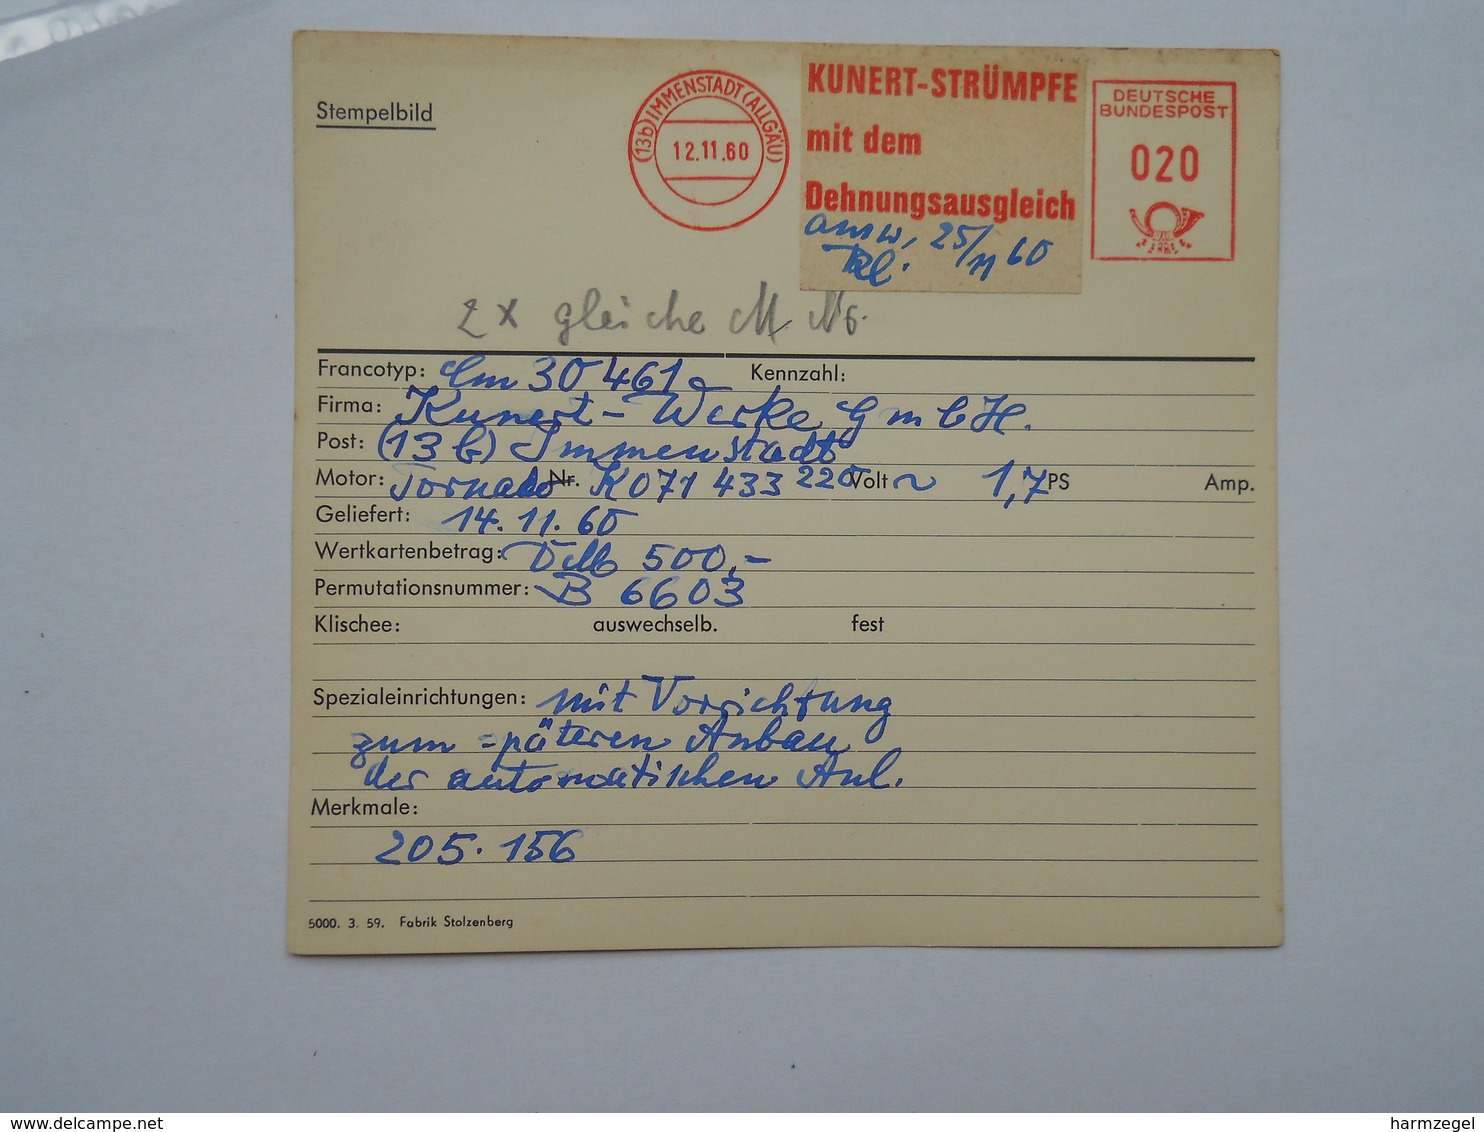 Stempelbild
(13b) IMMENSTADT (ALLGÄU)
12.11.60
KUNERT-STRÜMPFE
mit dem
Dehnungsausgleich
ausw. 25/11 60
DEUTSCHE
BUNDESPOST
020
2 x gleiche M. Nr.
Francotyp: Cm 30 461 Kennzahl:
Firma: Kunert-Werke GmbH.
Post: (13b) Immenstadt
Motor: Tornado Nr. K071 433 220 Volt ~ 1,7 PS Amp.
Geliefert: 14.11.60
Wertkartenbetrag: DM 500,-
Permutationsnummer: B 6603
Klischee: auswechselb. fest
Spezialeinrichtungen: mit Vorrichtung
zum späteren Anbau
der automatischen Anl.
Merkmale:
205.156
5000. 3. 59. Fabrik Stolzenberg
www.delcampe.net
harmzegel